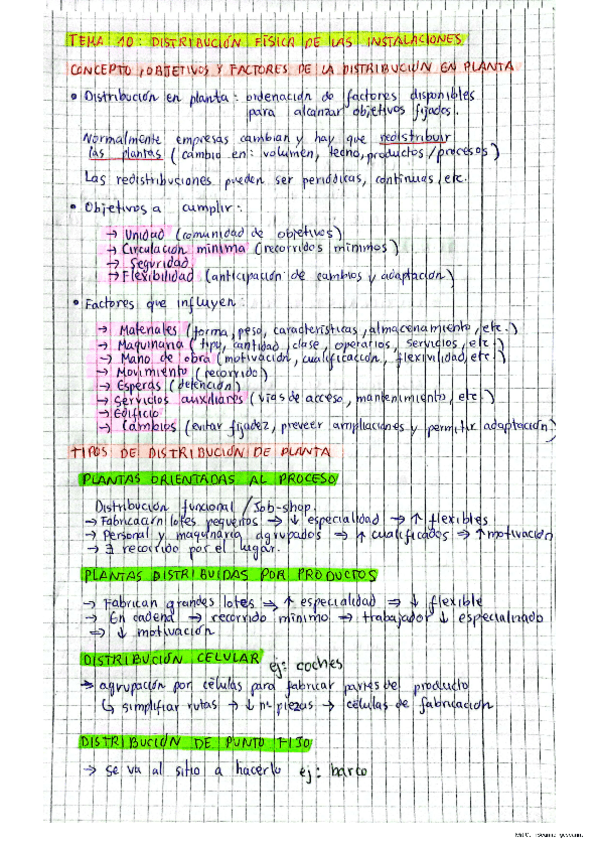 TEMA 10: DISTRIBUCIÓN FÍSICA DE LAS INSTALACIONES
CONCEPTO, OBJETIVOS Y FACTORES DE LA DISTRIBUCIÓN EN PLANTA
• Distribución en planta: ordenación de factores disponibles
para alcanzar objetivos fijados.
Normalmente empresas cambian y hay que redistribuir
las plantas (cambio en: volumen, tecno, productos/procesos)
Las redistribuciones pueden ser periódicas, continuas, etc.
• Objetivos a cumplir:
→ Unidad (comunidad de objetivos)
→ Circulación mínima (recorridos mínimos)
→ Seguridad
→ Flexibilidad (anticipación de cambios y adaptación)
• Factores que influyen:
→ Materiales (forma, peso, características, almacenamiento, etc.)
→ Maquinaria (tipo, cantidad, clase, operarios, servicios, etc.)
→ Mano de obra (motivación, cualificación, flexivilidad, etc.)
→ Movimiento (recorrido)
→ Esperas (detención)
→ Servicios auxiliares (vías de acceso, mantenimiento, etc.)
→ Edificio
→ Cambios (evitar fijadez, preveer ampliaciones y permitir adaptación)
TIPOS DE DISTRIBUCIÓN DE PLANTA
PLANTAS ORIENTADAS AL PROCESO
Distribución funcional / Job-shop.
→ Fabricación lotes pequeños → ↓ especialidad → ↑ flexibles
→ Personal y maquinaria agrupados → ↑ cualificados → ↑ motivación
→ ∃ recorrido por el lugar.
PLANTAS DISTRIBUIDAS POR PRODUCTOS
→ Fabrican grandes lotes → ↑ especialidad → ↓ flexible
→ En cadena → recorrido mínimo → trabajador ↓ especializado
→ ↓ motivación
DISTRIBUCIÓN CELULAR ej: coches
→ agrupación por células para fabricar partes de producto
↳ simplifiar rutas → ↓ nº piezas → células de fabricación
DISTRIBUCIÓN DE PUNTO FIJO
→ se va al sitio a hacerlo ej: barco